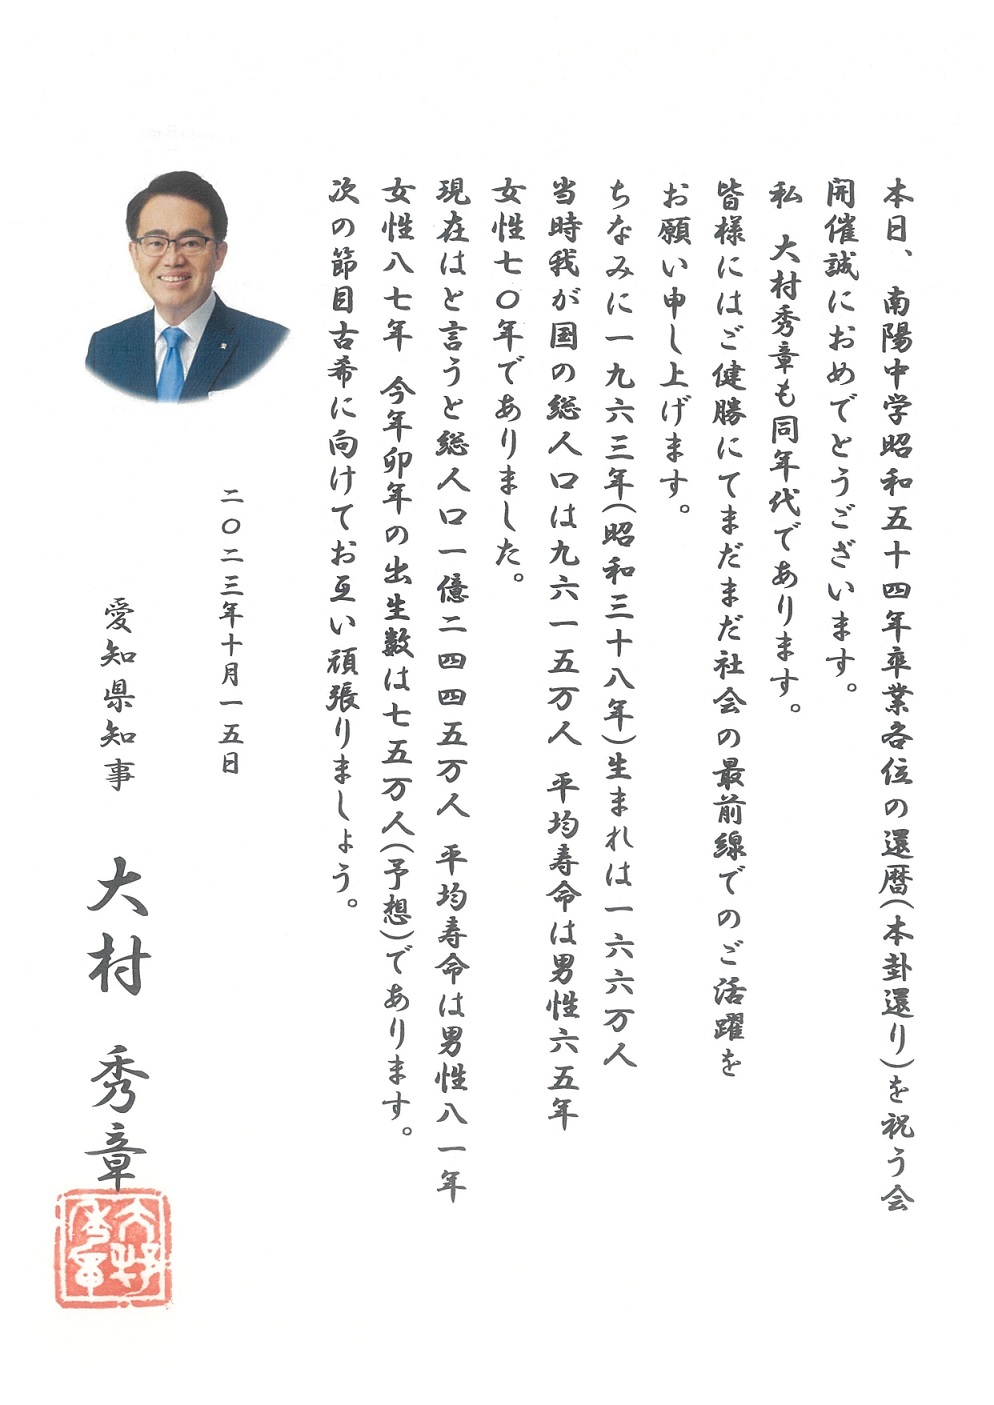 本日、南陽中学昭和五十四年卒業各位の還暦(本卦還り)を祝う会
開催誠におめでとうございます。
私 大村秀章も同年代であります。
皆様にはご健勝にてまだまだ社会の最前線でのご活躍を
お願い申し上げます。
ちなみに一九六三年(昭和三十八年)生まれは一六六万人
当時我が国の総人口は九六一五万人 平均寿命は男性六五年
女性七〇年でありました。
現在はと言うと総人口一億二四四五万人 平均寿命は男性八一年
女性八七年 今年卯年の出生数は七五万人(予想)であります。
次の節目古希に向けてお互い頑張りましょう。
二〇二三年十月一五日
愛知県知事 大村 秀章
大村
秀章